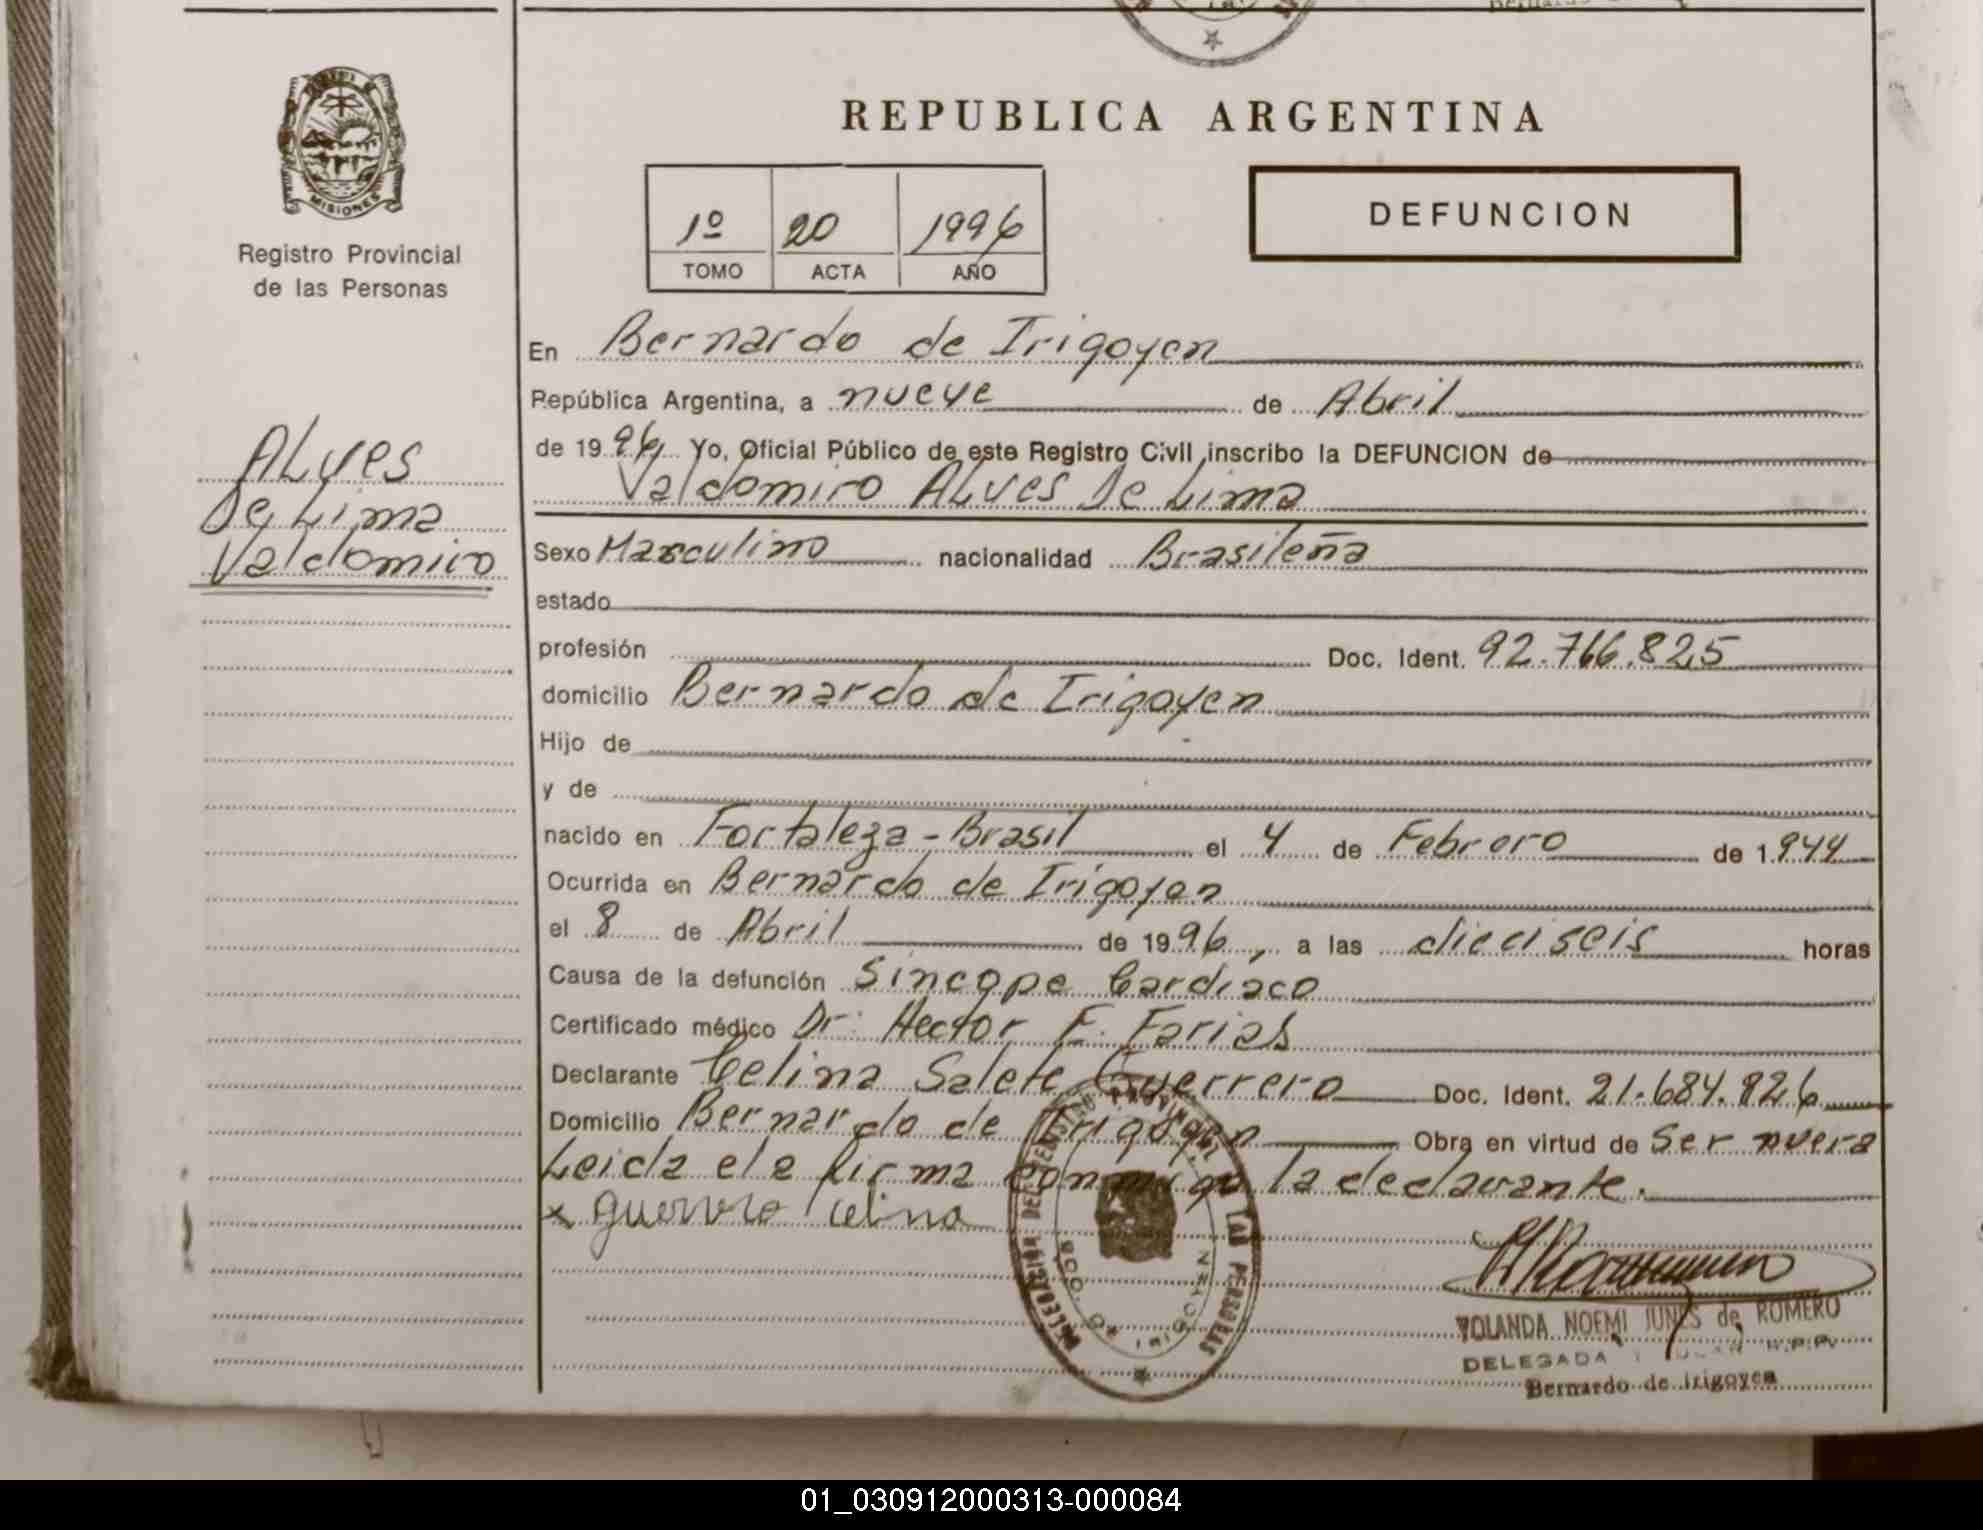 REPUBLICA ARGENTINA
MISIONES
Registro Provincial
de las Personas
1º 20 1996
TOMO ACTA AÑO
DEFUNCION
ALves
De Lima
Valdomiro
En Bernardo de Irigoyen
República Argentina, a nueve de Abril
de 1996. Yo, Oficial Público de este Registro Civil inscribo la DEFUNCION de
Valdomiro ALves De Lima
Sexo Masculino nacionalidad Brasileña
estado
profesión Doc. Ident. 92.766.825
domicilio Bernardo de Irigoyen
Hijo de
y de
nacido en Fortaleza - Brasil el 4 de Febrero de 1944
Ocurrida en Bernardo de Irigoyen
el 8 de Abril de 1996, a las dieciseis horas
Causa de la defunción Sincope Cardiaco
Certificado médico Dr: Hector E. Farias
Declarante Celina Salete Guerrero Doc. Ident. 21.684.826
Domicilio Bernardo de Irigoyen Obra en virtud de Ser nuera
Leida ela firma conmigo la declarante.
x guerrero celina
YOLANDA NOEMI JUNES de ROMERO
DELEGADA R.P.P.
Bernardo de Irigoyen
DELEGACION DEL REGISTRO PROVINCIAL DE LAS PERSONAS
BDO. DE IRIGOYEN
01_030912000313-000084